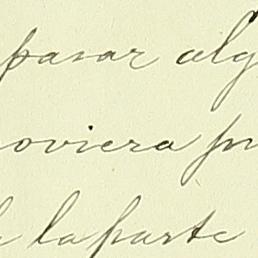 pasar alg
oviera pr
la parte